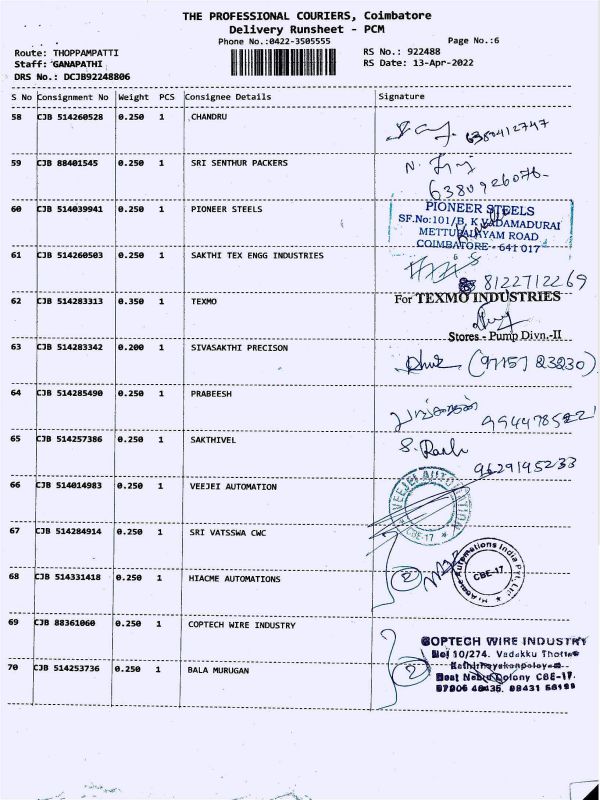 THE PROFESSIONAL COURIERS, Coimbatore
Delivery Runsheet - PCM
Phone No.:0422-3505555
Page No.:6
Route: THOPPAMPATTI
RS No.: 922488
Staff: GANAPATHI
RS Date: 13-Apr-2022
DRS No.: DCJB92248806
S No Consignment No Weight PCS Consignee Details Signature
58 CJB 514260528 0.250 1 CHANDRU
6380412747
59 CJB 88401545 0.250 1 SRI SENTHUR PACKERS
6380926076-
60 CJB 514039941 0.250 1 PIONEER STEELS
PIONEER STEELS
SF.No:101/B, K.VADAMADURAI
METTUPALAYAM ROAD
COIMBATORE - 641 017
61 CJB 514260503 0.250 1 SAKTHI TEX ENGG INDUSTRIES
8122712269
62 CJB 514283313 0.350 1 TEXMO
For TEXMO INDUSTRIES
Stores - Pump Divn.-II
63 CJB 514283342 0.200 1 SIVASAKTHI PRECISON
(97157 23230)
64 CJB 514285490 0.250 1 PRABEESH
65 CJB 514257386 0.250 1 SAKTHIVEL
9629195233
66 CJB 514014983 0.250 1 VEEJEI AUTOMATION
VEEJEI AUTOMATION
CBE-17
67 CJB 514284914 0.250 1 SRI VATSSWA CWC
68 CJB 514331418 0.250 1 HIACME AUTOMATIONS
2
Hi Acme Automations India Pvt. Ltd.
CBE-17
69 CJB 88361060 0.250 1 COPTECH WIRE INDUSTRY
COPTECH WIRE INDUSTRY
10/274. Vadakku Thottam
70 CJB 514253736 0.250 1 BALA MURUGAN
2
Kathirnayakanpalayam
Colony CBE-17.